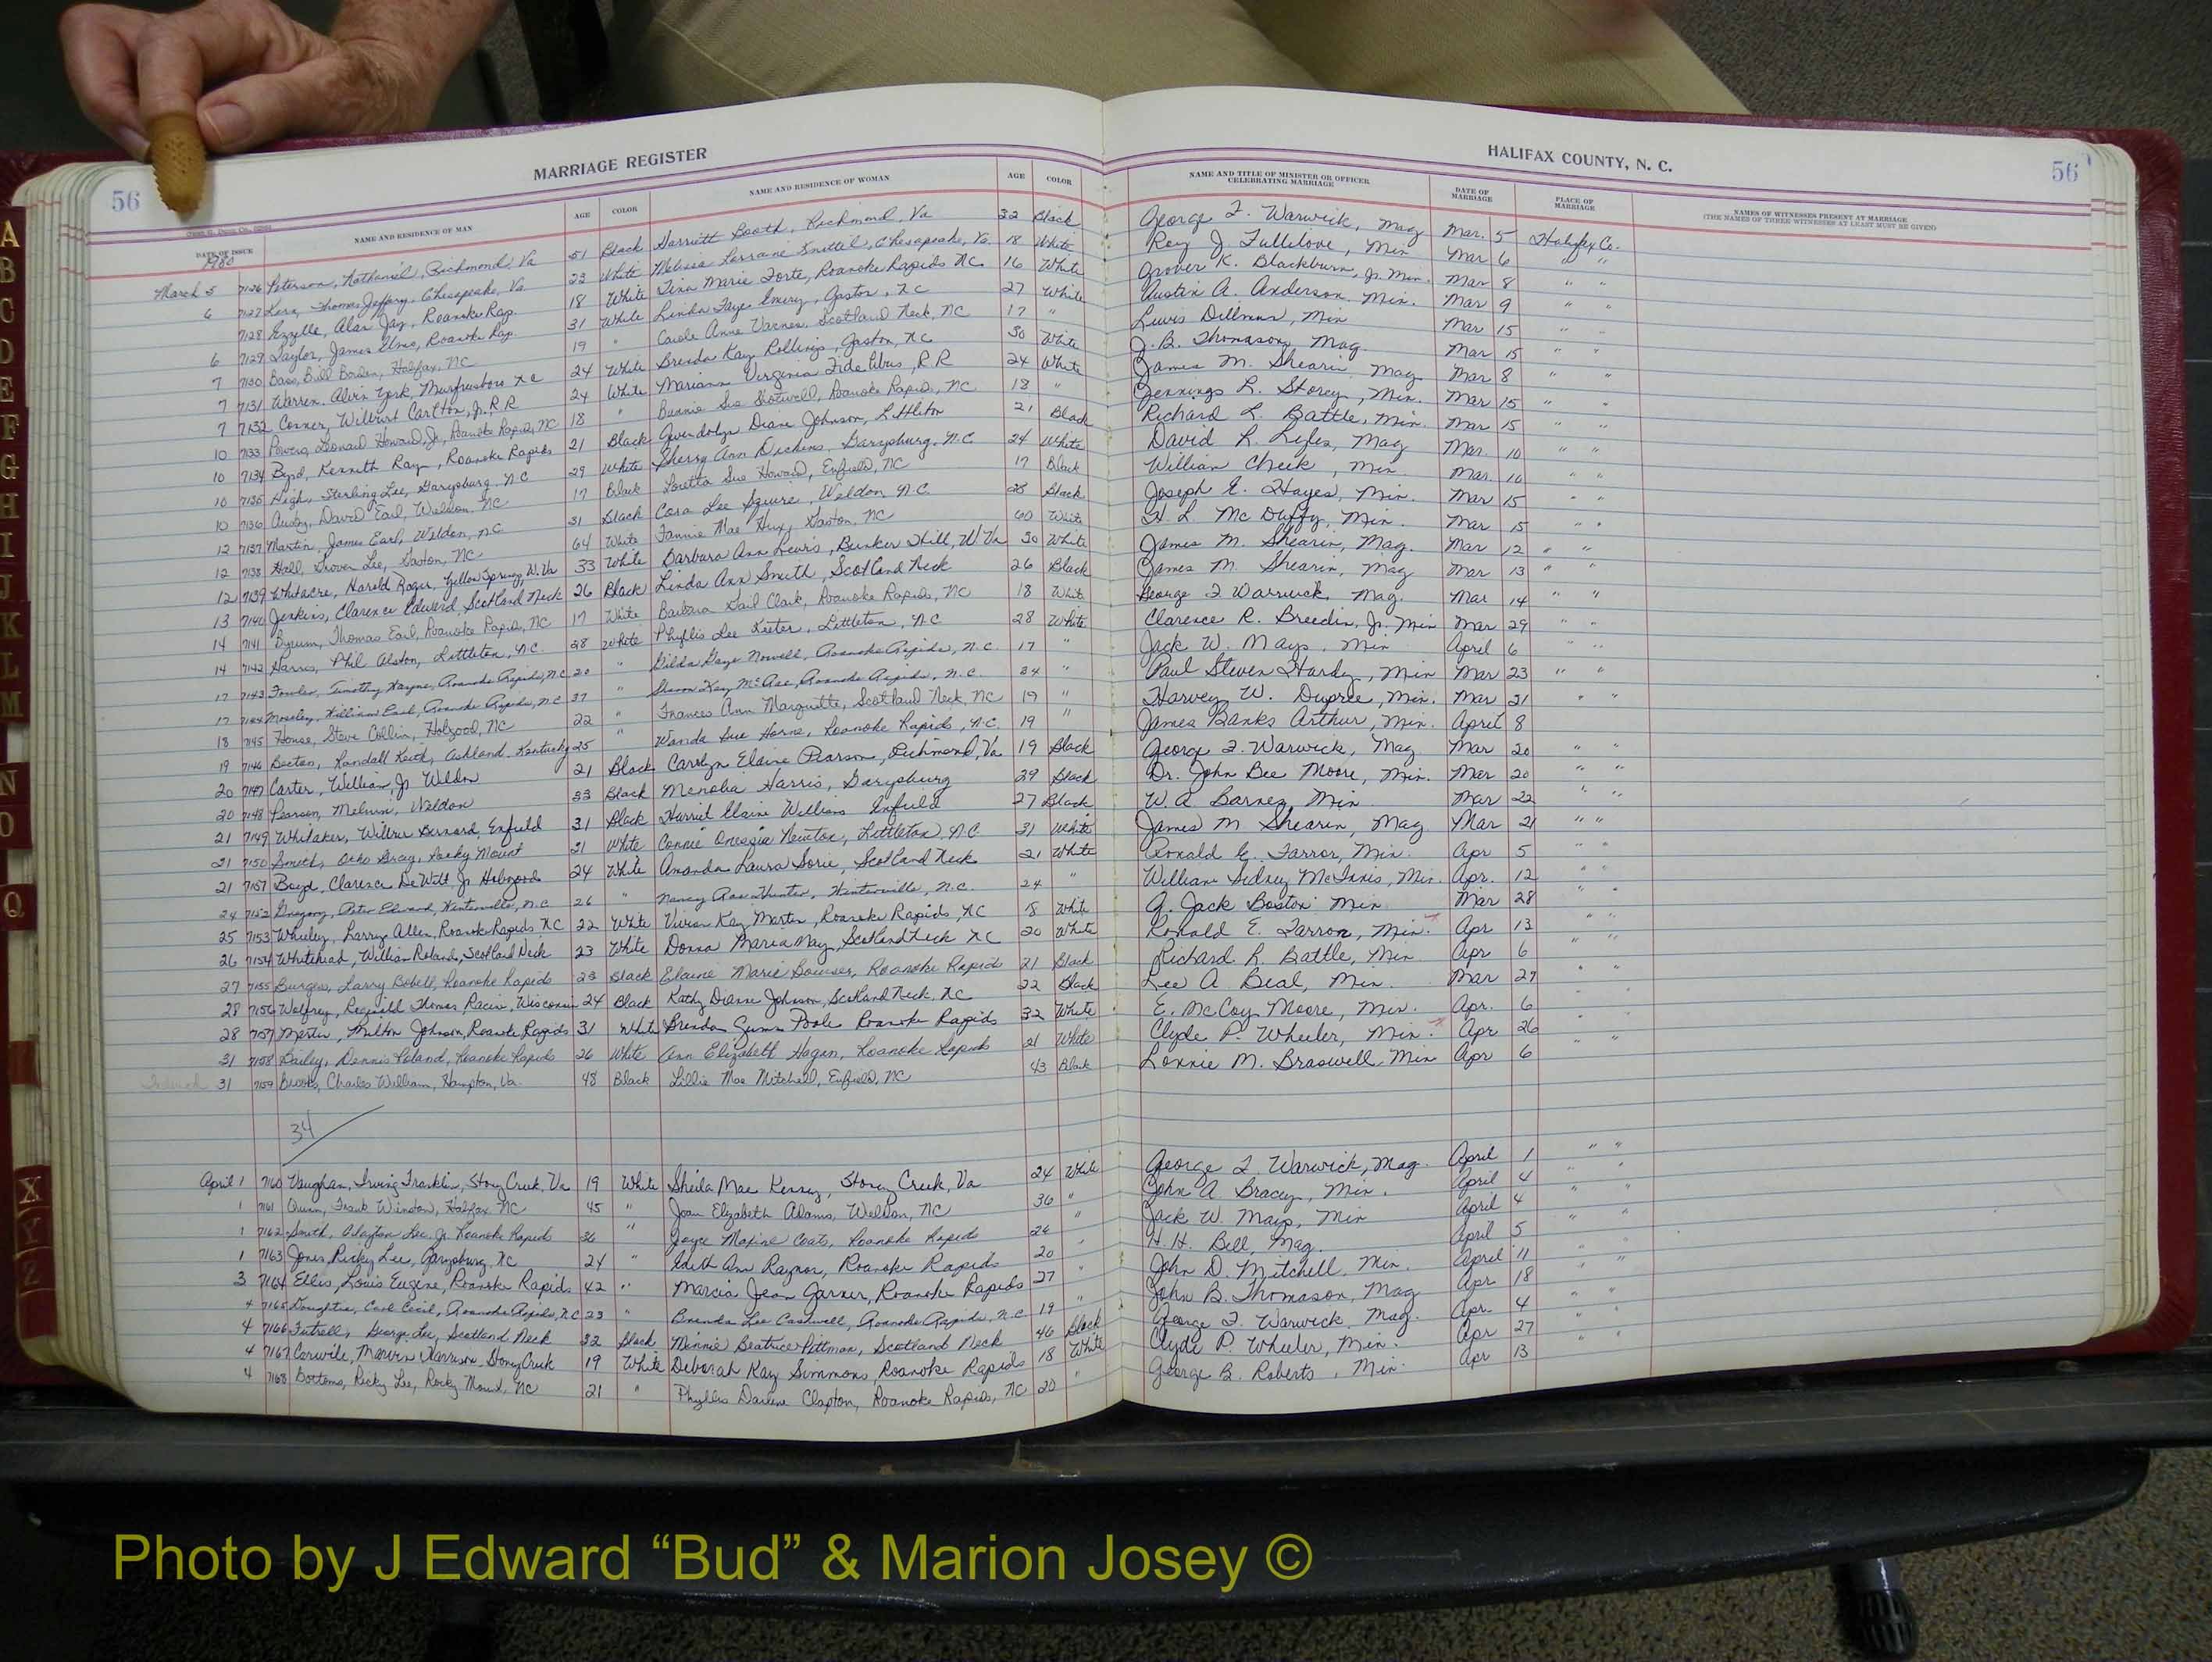 MARRIAGE REGISTER
HALIFAX COUNTY, N. C.
56
56
DATE OF ISSUE NAME AND RESIDENCE OF MAN AGE COLOR NAME AND RESIDENCE OF WOMAN AGE COLOR NAME AND TITLE OF MINISTER OR OFFICER CELEBRATING MARRIAGE DATE OF MARRIAGE PLACE OF MARRIAGE NAMES OF WITNESSES PRESENT AT MARRIAGE (THE NAMES OF THREE WITNESSES AT LEAST MUST BE GIVEN)
1980
March 5 7126 Peterson, Nathaniel, Richmond, Va 51 Black Harriett Booth, Richmond, Va 32 Black George F. Warwick, Mag Mar. 5 Halifax Co.
6 7127 Thomas Jeffery, Chesapeake, Va. 23 White Melissa Lorraine Chesapeake, Va. 18 White Roy J. Fullilove, Min Mar 6 " "
7128 Ezzelle, Alan Jay, Roanoke Rap. 18 White Tina Marie Forte, Roanoke Rapids NC. 16 White Grover K. Blackburn, Jr. Min. Mar 8 " "
6 7129 Taylor, James Roanoke Rap. 31 White Linda Faye Emery, Gaston, NC 27 White Austin A. Anderson, Min. Mar 9 " "
7 7130 Bass, Bill Borden, Halifax, NC 19 " Carole Anne Varner, Scotland Neck, NC 17 " Lewis Dillman, Min Mar 15 " "
7 7131 Warren, Alvin York, Murfreesboro NC 24 White Brenda Kay Rollings, Gaston, NC 30 White J. B. Thomason, Mag. Mar 15 " "
7 7132 Conner, Wilbert Carlton, Jr. R R 24 White Mariann Virginia R R 24 White James M. Shearin, Mag Mar 8 " "
10 7133 Powers, Leonard Howard, Jr., Roanoke Rapids, NC 18 " Bunnie Sue Shotwell, Roanoke Rapids, NC 18 " Jennings R. Storey, Min. Mar 15 " "
10 7134 Byrd, Kenneth Ray, Roanoke Rapids 21 Black Gwendolyn Diane Johnson, Littleton 21 Black Richard L. Battle, Min. Mar 15 " "
10 7135 High, Sterling Lee, Garysburg, N.C 29 White Sherry Ann Dickens, Garysburg, N.C. 24 White David L. Liles, Mag Mar. 10 " "
10 7136 David Earl, Weldon, NC 17 Black Loretta Sue Howard, Enfield, NC 17 Black William Cheek, Min. Mar. 16 " "
12 7137 Martin, James Earl, Weldon, NC 31 Black Cora Lee Squire, Weldon, N.C 25 Black Joseph E. Hayes, Min. Mar 15 " "
12 7138 Hall, Grover Lee, Gaston, NC 64 White Fannie Mae Hux, Gaston, NC 60 White H. L. Mc Duffy, Min. Mar 15 " "
12 7139 Whitacre, Harold Roger, Yellow Spring, W. Va 33 White Barbara Ann Lewis, Bunker Hill, W Va 30 White James M. Shearin, Mag. Mar 12 " "
13 7140 Jenkins, Clarence Edward, Scotland Neck 26 Black Linda Ann Smith, Scotland Neck 26 Black James M. Shearin, Mag Mar 13 " "
14 7141 Byrum, Thomas Earl, Roanoke Rapids, NC 17 White Barbara Gail Clark, Roanoke Rapids, NC 18 White George F Warwick, Mag. Mar 14 " "
14 7142 Harris, Phil Alston, Littleton, N.C 28 White Phyllis Lee Keeter, Littleton, N.C 28 White Clarence R. Breedin, Jr. Min Mar 29 " "
17 7143 Fowler, Timothy Wayne, Roanoke Rapids, N.C. 20 " Gilda Gaye Nowell, Roanoke Rapids, N.C. 17 " Jack W. Mays, Min April 6 " "
17 7144 Moseley, William Earl, Roanoke Rapids, N.C 37 " Sharon Kay McRae, Roanoke Rapids, N.C. 34 " Paul Steven Hardy, Min Mar 23 " "
18 7145 House, Steve Collin, Hobgood, NC 22 " Frances Ann Marquette, Scotland Neck, NC 19 " Harvey W. Dupree, Min. Mar 21 " "
19 7146 Randall Keith, Ashland, Kentucky 25 " Wanda Sue Horne, Roanoke Rapids, N.C. 19 " James Banks Arthur, Min. April 8
20 7147 Carter, William, Jr Weldon 21 Black Carolyn Elaine Pearson, Richmond, Va 19 Black George F. Warwick, Mag Mar 20 " "
20 7148 Pearson, Melvin, Weldon 33 Black Menolia Harris, Garysburg 29 Black Dr. John Bee Moore, Min. Mar 20 " "
21 7149 Whitaker, Wilbur Bernard, Enfield 31 Black Harriet Elaine Williams Enfield 27 Black W. A. Barnes, Min Mar 22 " "
21 7150 Smith, Gray, Rocky Mount 21 White Connie Newton, Littleton, N.C 31 White James M Shearin, Mag Mar 21 " "
21 7151 Boyd, Clarence DeWitt Jr Hobgood 24 White Amanda Laura Sorie, Scotland Neck 21 White Ronald E. Farror, Min. Apr 5 " "
24 7152 Gregory, Peter Edward, Winterville, N.C 26 " Nancy Rae Hunter, Winterville, N.C. 24 " William Sidney McInnis, Min. Apr. 12 " "
25 7153 Wheeley, Larry Allen, Roanoke Rapids NC 22 White Vivian Kay Martin, Roanoke Rapids, NC 18 White A. Jack Boston Min Mar 28 " "
26 7154 Whitehead, William Roland, Scotland Neck 23 White Donna Maria May, Scotland Neck NC 20 White Ronald E. Farror, Min. Apr 13 " "
27 7155 Burgess, Larry Bobell, Roanoke Rapids 23 Black Elaine Marie Bowser, Roanoke Rapids 21 Black Richard L. Battle, Min Apr 6 " "
28 7156 Reginald Thomas, Racin, Wisconsin 24 Black Kathy Diane Johnson, Scotland Neck, NC 22 Black Lee A Beal, Min. Mar 29 " "
28 7157 Martin, Milton Johnson, Roanoke Rapids 31 White Brenda Gunn Poole Roanoke Rapids 32 White E. McCoy Moore, Min. Apr. 6
31 7158 Bailey, Dennis Roanoke Rapids 26 White Ann Elizabeth Hagan, Roanoke Rapids 21 White Clyde P. Wheeler, Min. Apr 26 " "
31 7159 Brooks, Charles William, Hampton, Va. 48 Black Lillie Mae Mitchell, Enfield, NC 43 Black Lonnie M. Braswell Min Apr 6
34
April 1 7160 Vaughan, Irving Franklin, Stony Creek, Va 19 White Sheila Mae Kersey, Stoney Creek, Va 24 White George F Warwick, Mag. April 1 " "
1 7161 Quinn, Frank Winston, Halifax, NC 45 " Joan Elizabeth Adams, Weldon, NC 36 " John A. Bracey, Min. April 4 " "
1 7162 Smith, Clayton Lee, Jr. Roanoke Rapids 36 " Joyce Maxine Coats, Roanoke Rapids 26 " Jack W. Mays, Min April 4 " "
1 7163 Jones, Ricky Lee, Garysburg, NC 24 " Edith Ann Raynor, Roanoke Rapids 20 " H. H. Bell, Mag. April 5 " "
3 7164 Ellis, Louis Eugene, Roanoke Rapids 42 " Marcia Jean Garner, Roanoke Rapids 27 " John D. Mitchell, Min. April 11 " "
4 7165 Doughtie, Carl Cecil, Roanoke Rapids, N.C 23 " Brenda Lee Roanoke Rapids, N.C 19 " John B. Thomason, Mag Apr 18 " "
4 7166 Futrell, George Lee, Scotland Neck 52 Black Minnie Beatrice Pittman, Scotland Neck 46 Black George F. Warwick, Mag. Apr. 4 " "
4 7167 Carwile, Marvin Harrison, Stoney Creek 19 White Deborah Kay Simmons, Roanoke Rapids 18 White Clyde P. Wheeler, Min. Apr 27 " "
4 7168 Bottoms, Ricky Lee, Rocky Mount, NC 21 " Phyllis Darlene Clapton, Roanoke Rapids, NC 20 " George B. Roberts, Min. Apr 13
A
B
C
D
E
F
G
H
I
J
K
L
M
N
O
Q
X
Y
Z
Photo by J Edward “Bud” & Marion Josey ©